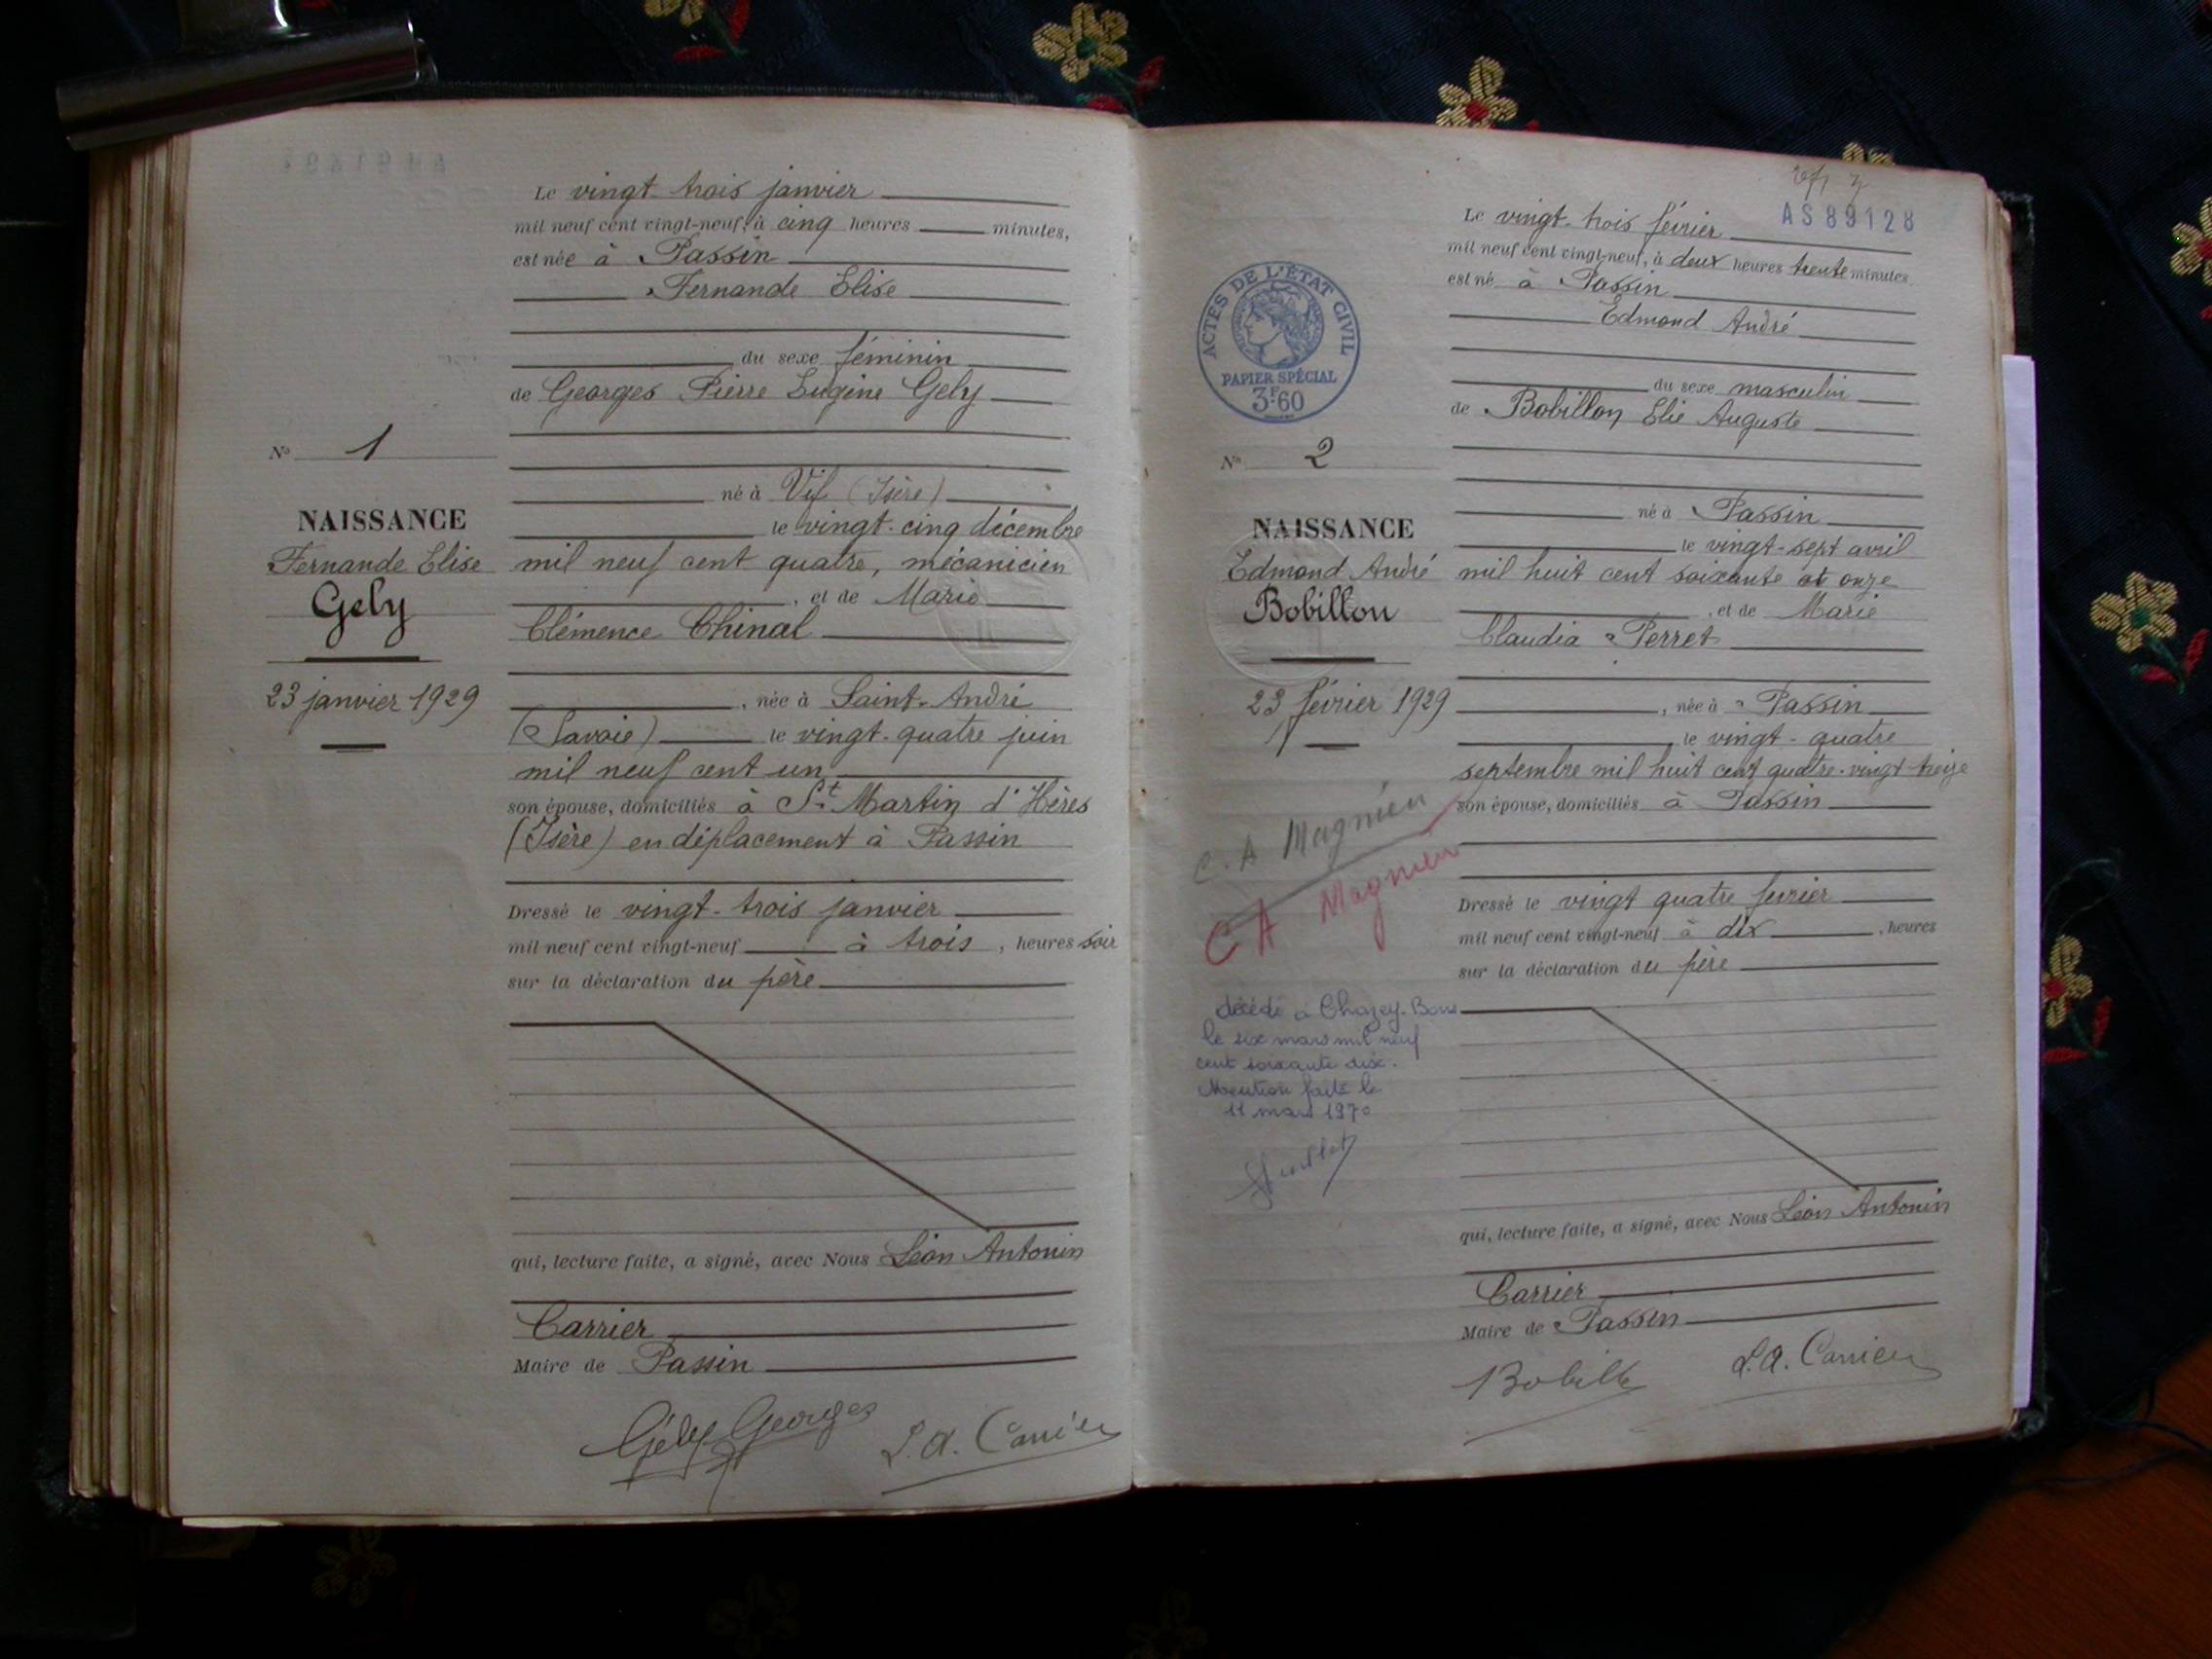 Le vingt-trois janvier
mil neuf cent vingt-neuf, à cinq heures minutes,
est née à Passin
Fernande Elise
du sexe féminin
de Georges Pierre Eugène Gely
N° 1
né à Vif (Isère)
NAISSANCE
le vingt-cinq décembre
Fernande Elise
mil neuf cent quatre, mécanicien
Gely
, et de Marie
Clémence Chinal
23 janvier 1929
, née à Saint-André
(Savoie) le vingt-quatre juin
mil neuf cent un
son épouse, domiciliés à St Martin d'Hères
(Isère) en déplacement à Passin
Dressé le vingt-trois janvier
mil neuf cent vingt-neuf à trois, heures soir
sur la déclaration du père
qui, lecture faite, a signé, avec Nous Léon Antonin
Carrier
Maire de Passin
Gély Georges
L.A. Carrier
AS 89128
Le vingt-trois février
mil neuf cent vingt-neuf, à deux heures trente minutes
est né à Passin
Edmond André
ACTES DE L'ÉTAT CIVIL
PAPIER SPÉCIAL
3F60
du sexe masculin
de Bobillon Elie Auguste
N° 2
né à Passin
NAISSANCE
le vingt-sept avril
Edmond André
mil huit cent soixante et onze
Bobillon
, et de Marie
Claudia Perret
23 février 1929
, née à Passin
le vingt-quatre
septembre mil huit cent quatre-vingt-treize
son épouse, domiciliés à Passin
C. A Magnien
C A Magnien
Dressé le vingt quatre fevrier
mil neuf cent vingt-neuf à dix, heures
sur la déclaration du père
décédé à Chazey-Bons
le six mars mil neuf
cent soixante dix.
Mention faite le
11 mars 1970
qui, lecture faite, a signé, avec Nous Léon Antonin
Carrier
Maire de Passin
L.A. Carrier